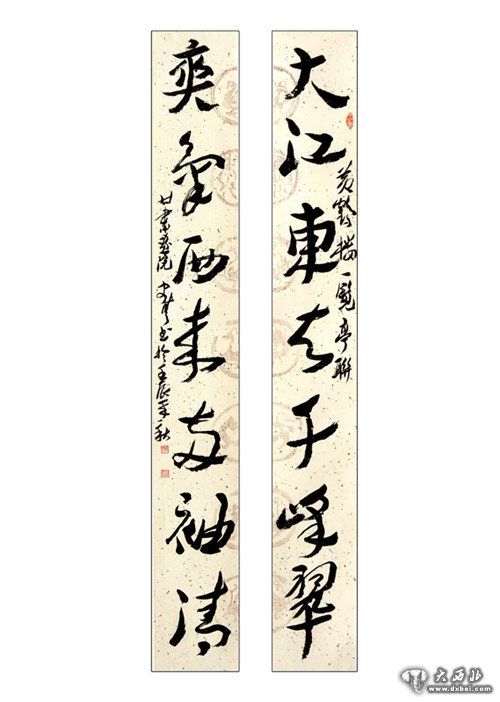 大江東去千峰翠
一覽亭聯
爽氣西來兩袖清
甘肅畫院
書於壬辰年秋
大西北
www.dxbei.com